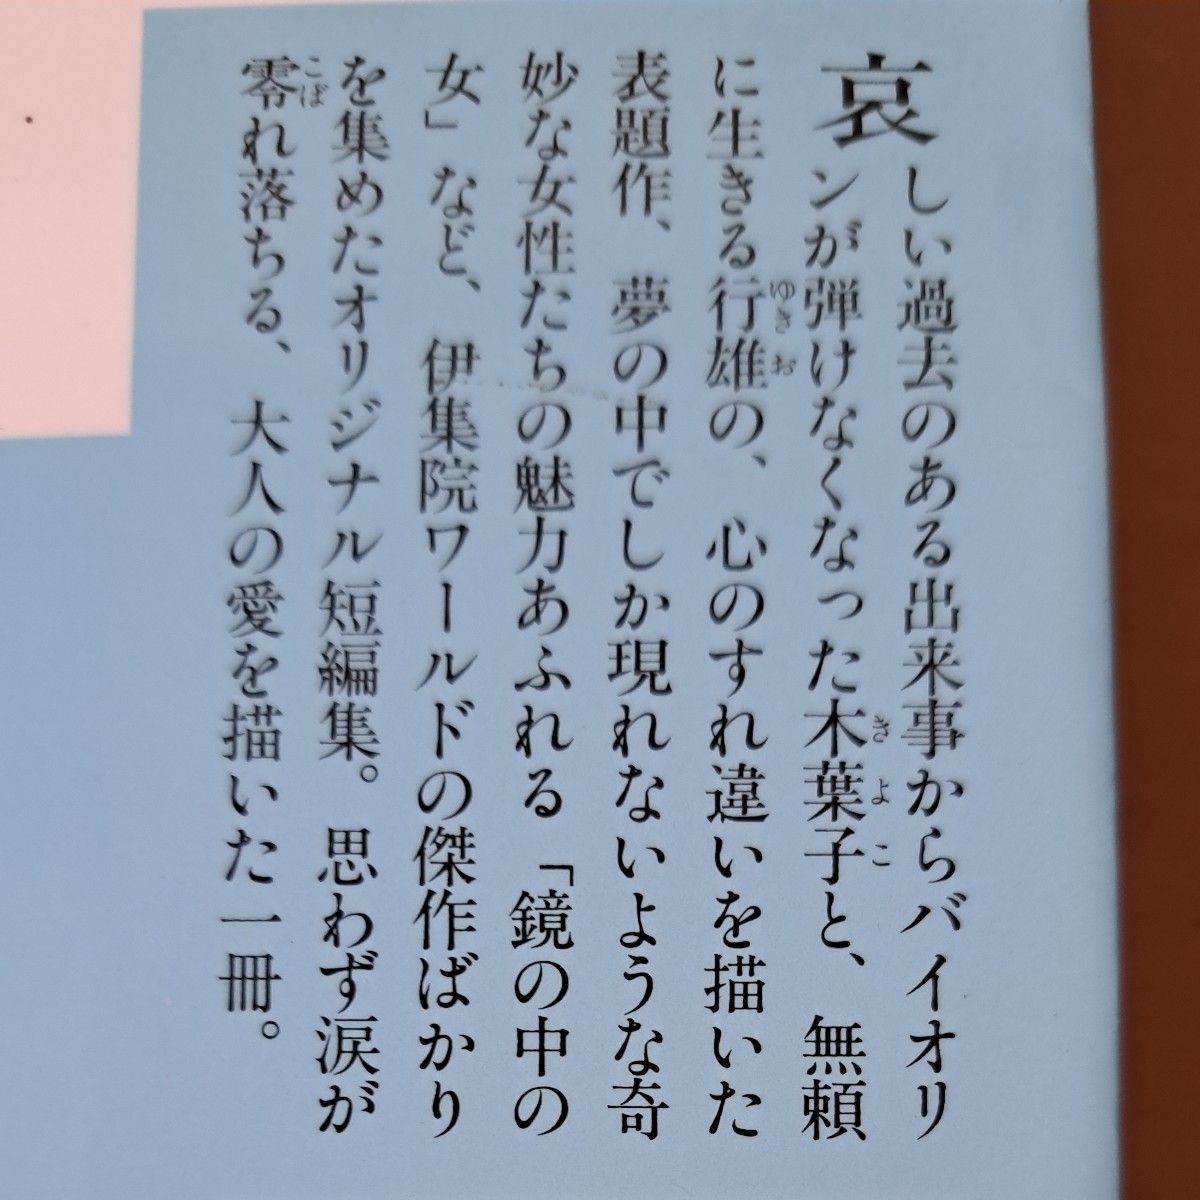 哀しい過去のある出来事からバイオリ
ンが弾けなくなった木葉子と、無頼
に生きる行雄の、心のすれ違いを描いた
表題作、夢の中でしか現れないような奇
妙な女性たちの魅力あふれる「鏡の中の
女」など、伊集院ワールドの傑作ばかり
を集めたオリジナル短編集。思わず涙が
零れ落ちる、大人の愛を描いた一冊。
きよこ
ゆきお
こぼ